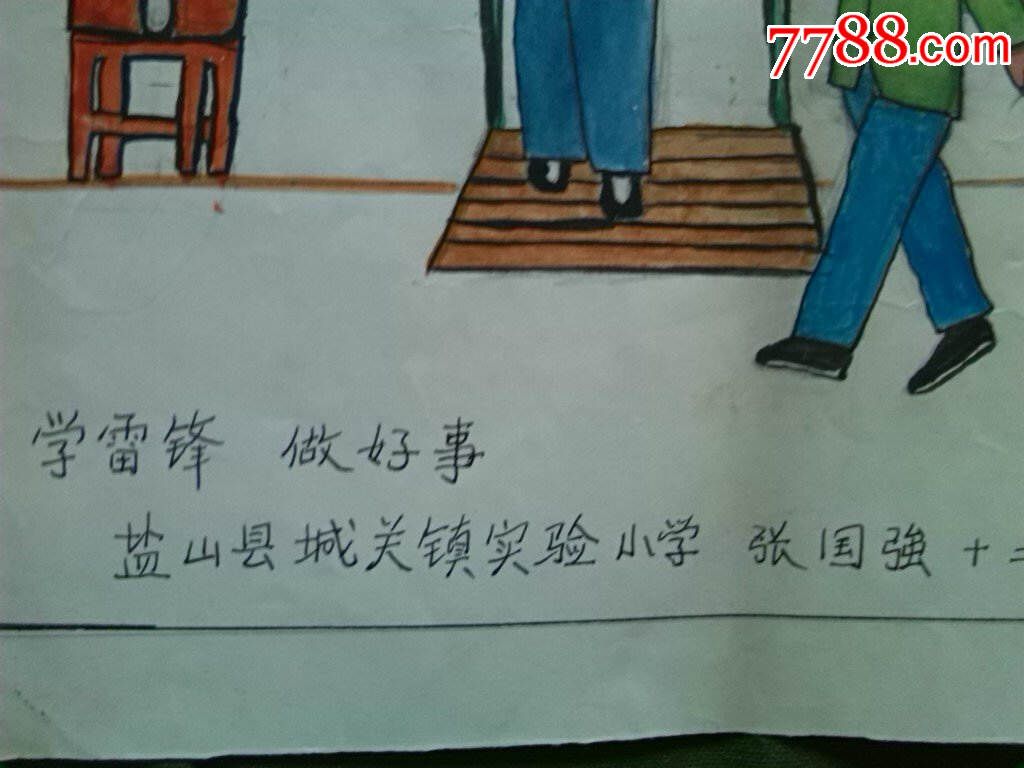 7788.com
学雷锋 做好事
盐山县城关镇实验小学 张国強 十二